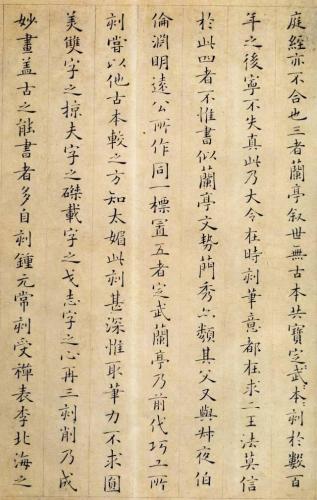 庭經亦不合也三者蘭亭叙世無古本共寶定武本刻於數百
年之後寧不失真此乃大令在時刻筆意都在求二王法莫信
於此四者不惟書似蘭亭文勢簡秀亦類其父又與叔夜伯
倫淵明遠公所作同一標置五者定武蘭亭乃前代巧工所
刻嘗以他古本較之方知太媚此刻甚深惟取筆力不求圓
美雙字之掠夫字之磔載字之戈志字之心再三刻削乃成
妙畫蓋古之能書者多自刻鍾元常刻受禪表李北海之